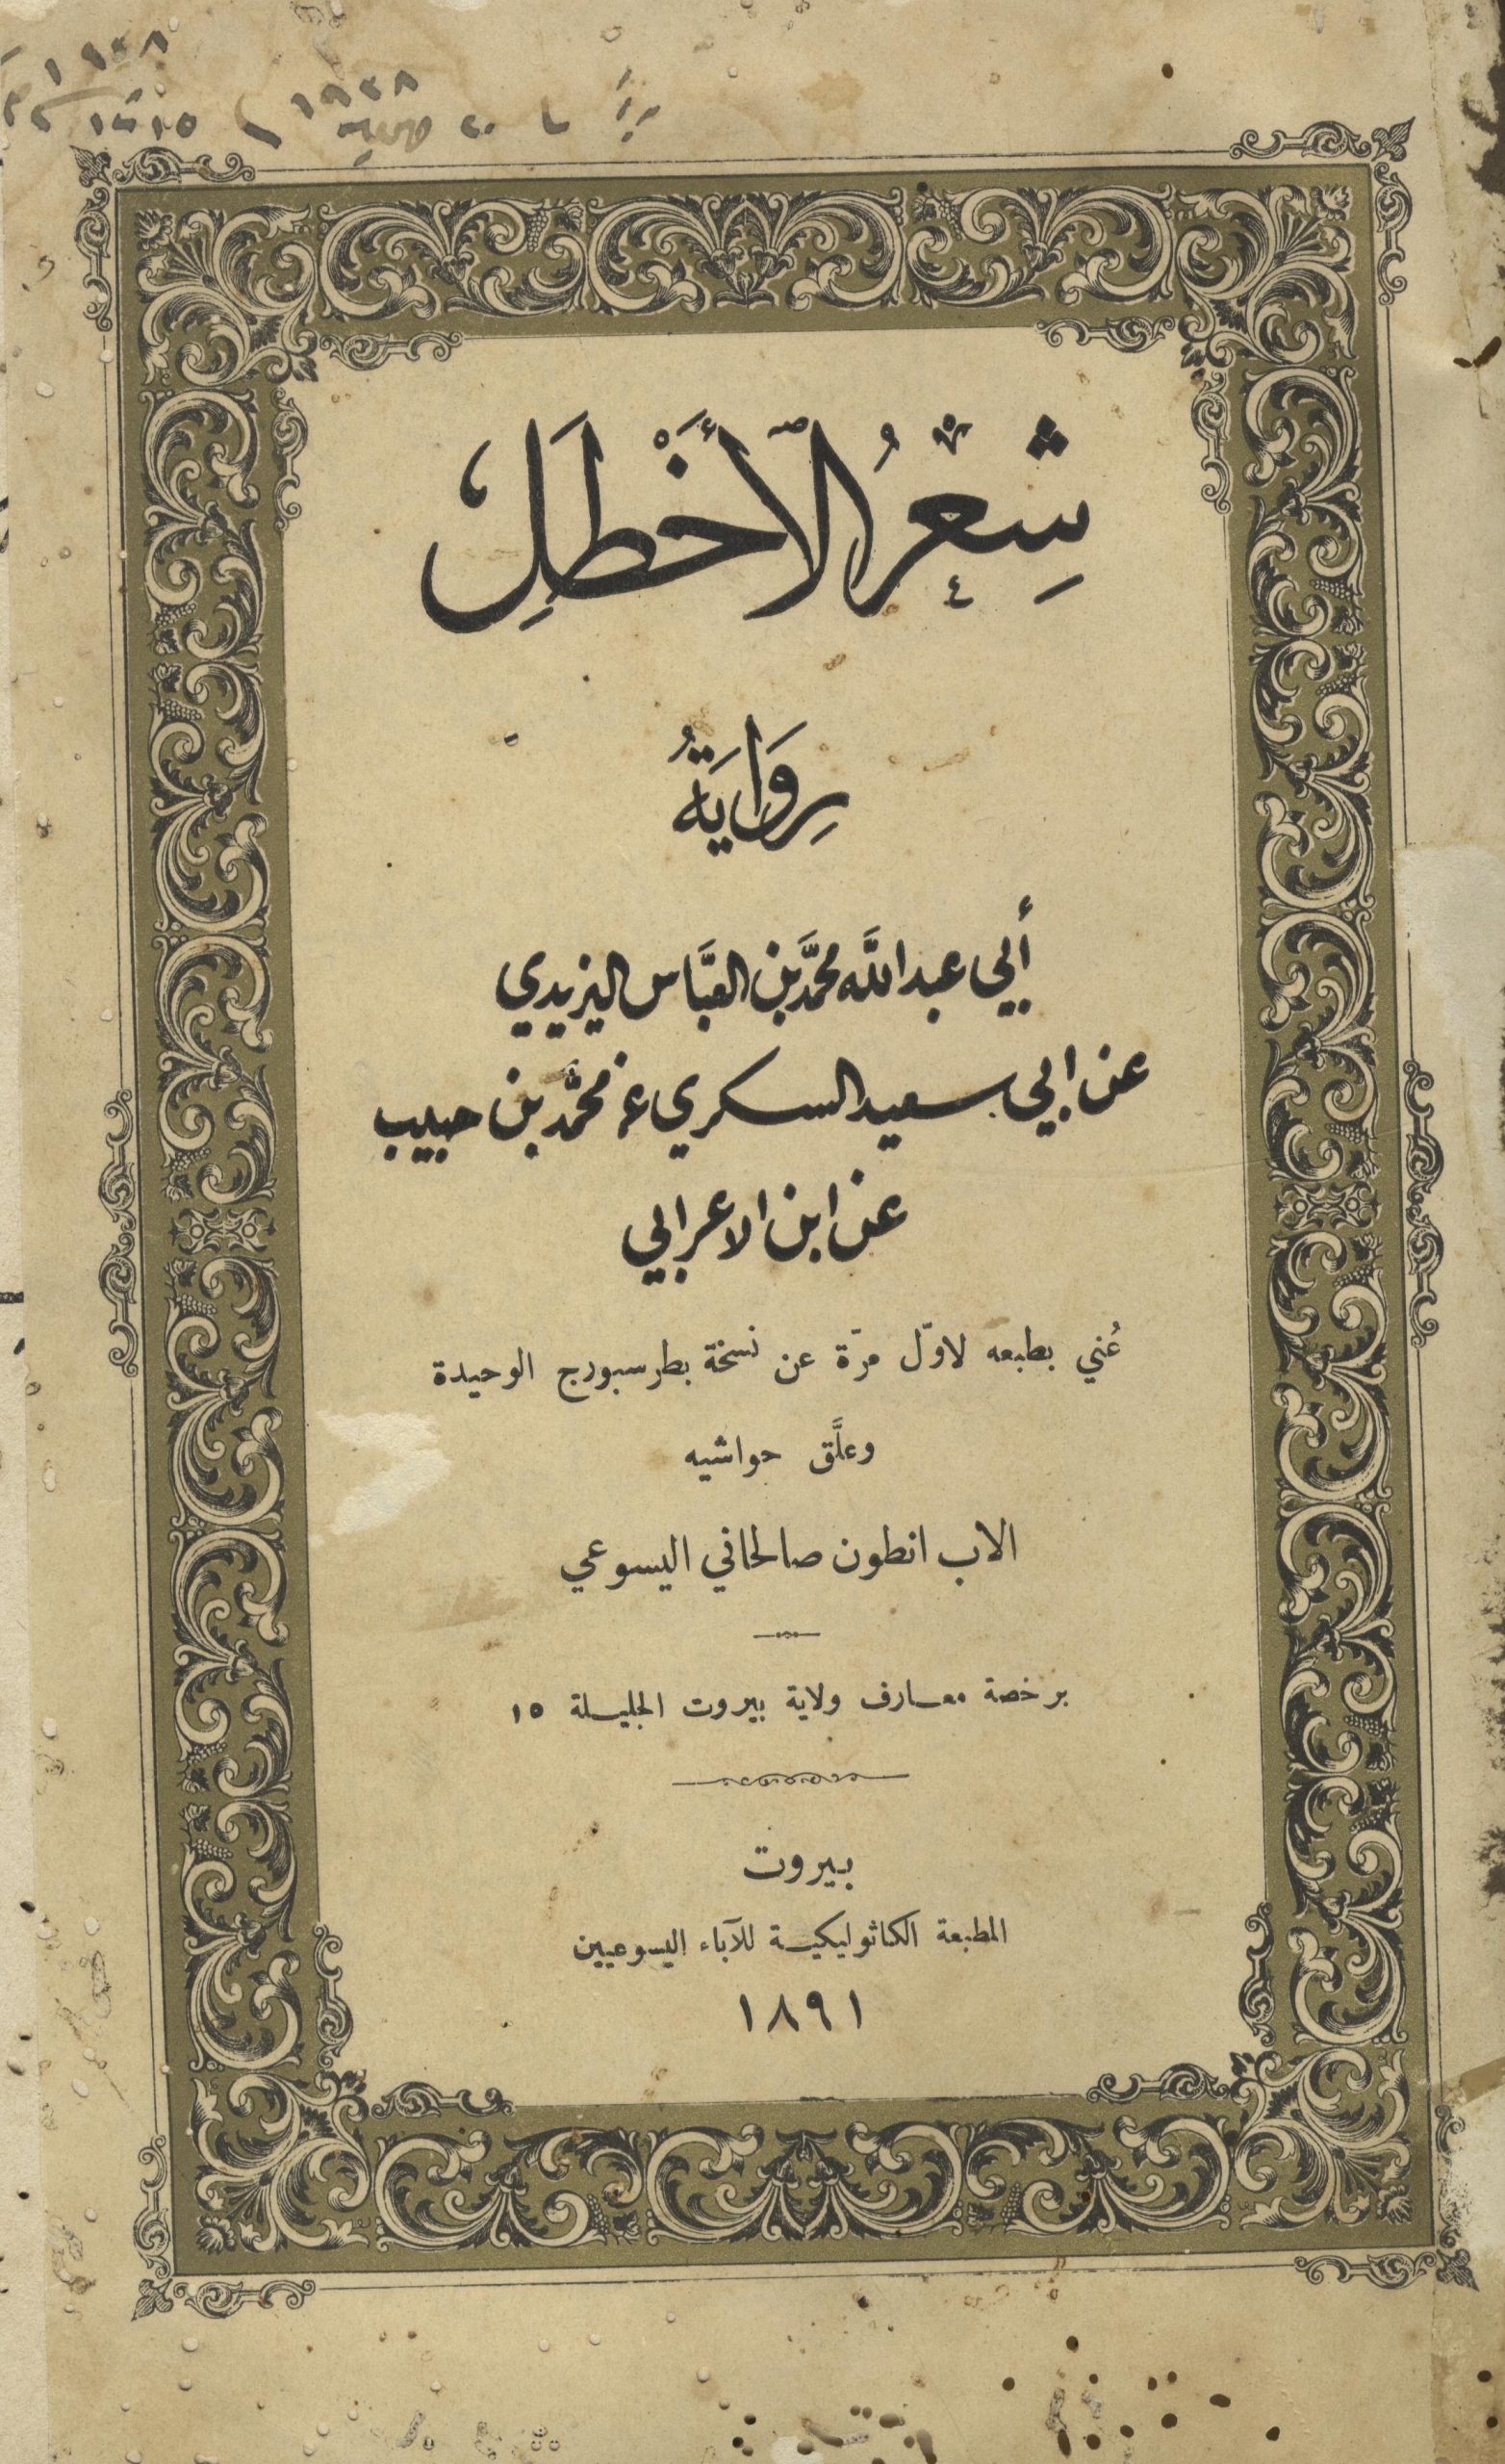 ١٩٢٨
١٩٢٨
شِعْرُ الأَخْطَلِ
رِوَايَةُ
أبي عبد اللَّه محمَّد بن العبَّاس اليزيدي
عن ابي سعيد السكري عن محمَّد بن حبيب
عن ابن الاعرابي
عُني بطبعه لاوّل مرّة عن نسخة بطرسبورج الوحيدة
وعلَّق حواشيه
الاب انطون صالحاني اليسوعي
برخصة معارف ولاية بيروت الجليلة ١٥
بيروت
المطبعة الكاثوليكية للآباء اليسوعيين
١٨٩١